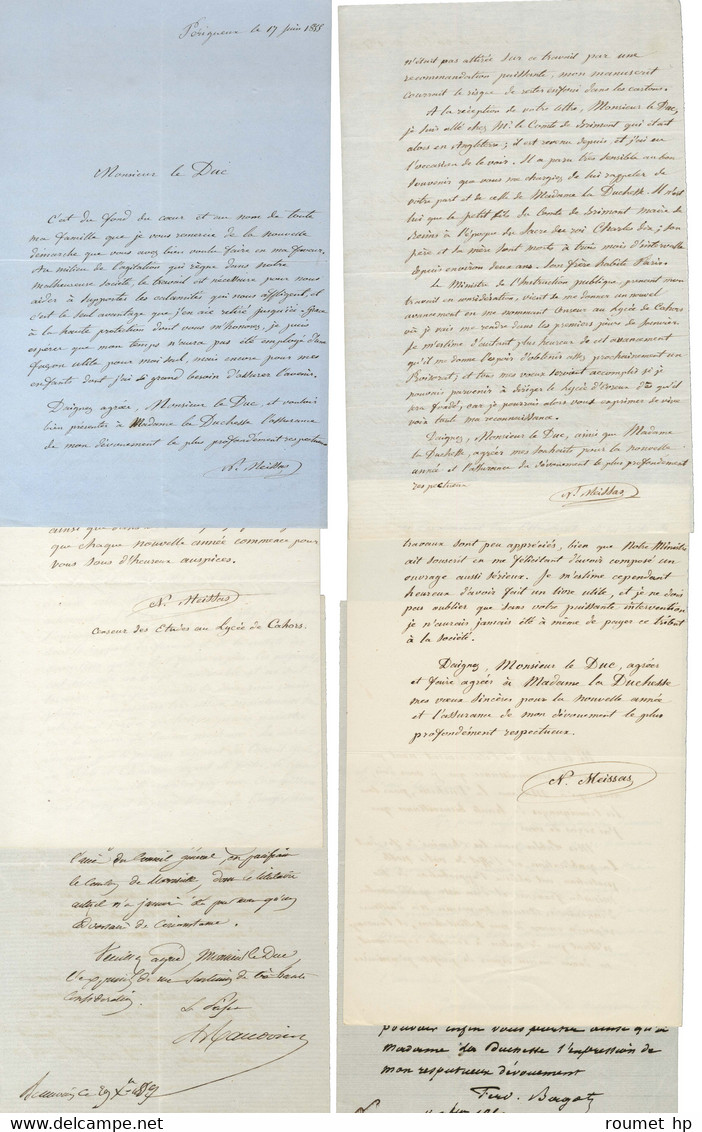 Périgueux le 17 juin 1855
Monsieur le Duc
C'est du fond du cœur et au nom de toute
ma famille que je vous remercie de la nouvelle
démarche que vous avez bien voulu faire en ma faveur.
Au milieu de l'agitation qui règne dans notre
malheureuse société, le travail est nécessaire pour nous
aider à supporter les calamités qui nous affligent, et
c'est le seul avantage que j'en aie retiré jusqu'ici. Grâce
à la haute protection dont vous m'honorez, je puis
espérer que mon temps n'aura pas été employé d'une
façon utile pour moi seul, mais encore pour mes
enfants dont j'ai si grand besoin d'assurer l'avenir.
Daignez agréer, Monsieur le Duc, et vouloir
bien présenter à Madame la Duchesse l'assurance
de mon dévouement le plus profondément respectueux
N. Meissas
que chaque nouvelle année commence pour
vous sous d'heureux auspices.
N. Meissas
Censeur des Etudes au Lycée de Cahors.
du Conseil général, en
le Canton de , dont le titulaire
actuel n'a jamais été
de Circonstance.
Veuillez agréer, Monsieur le Duc
de mes sentiments de très haute
considération.
Le Préfet
Beauvais, ce 29 Xbre
n'était pas attirée sur ce travail par une
recommandation puissante, mon manuscrit
courrait le risque de rester enfoui dans les cartons.
A la réception de votre lettre, Monsieur le Duc,
je suis allé chez Mr le Comte de Brimont qui était
alors en Angleterre; il est revenu depuis et j'ai eu
l'occasion de le voir. Il a paru très sensible au bon
souvenir que vous me chargiez de lui rappeler de
votre part et de celle de Madame la Duchesse. Il n'est
lui que le petit fils du Comte de Brimont maire de
Reims à l'époque du Sacre du roi Charles dix; son
père et sa mère sont morts à trois mois d'intervalle
depuis environ deux ans. Son frère habite Paris.
Le Ministre de l'Instruction publique, prenant mon
travail en considération, vient de me donner un nouvel
avancement en me nommant Censeur au Lycée de Cahors
où je vais me rendre dans les premiers jours de Janvier.
Je m'estime d'autant plus heureux de cet avancement
qu'il me donne l'espoir d'obtenir assez prochainement un
Rectorat; et tous mes vœux seraient accomplis si je
pouvais parvenir à diriger le Lycée d' dès qu'il
sera fondé, car je pourrais alors vous exprimer de vive
voix toute ma reconnaissance.
Daignez, Monsieur le Duc, ainsi que Madame
la Duchesse, agréer mes souhaits pour la nouvelle
année et l'assurance du dévouement le plus profondément
respectueux
N. Meissas
travaux sont peu appréciés, bien que Notre Ministre
ait souscrit en me félicitant d'avoir composé un
ouvrage aussi sérieux. Je m'estime cependant
heureux d'avoir fait un livre utile, et je ne dois
pas oublier que sans votre puissante intervention
je n'aurais jamais été à même de payer ce tribut
à la société.
Daignez, Monsieur le Duc, agréer
et faire agréer à Madame la Duchesse
mes vœux sincères pour la nouvelle année
et l'assurance de mon dévouement le plus
profondément respectueux.
N. Meissas
pouvoir enfin vous porter ainsi qu'à
Madame la Duchesse l'expression de
mon respectueux dévouement
Ferd. Bagot
roumet hp